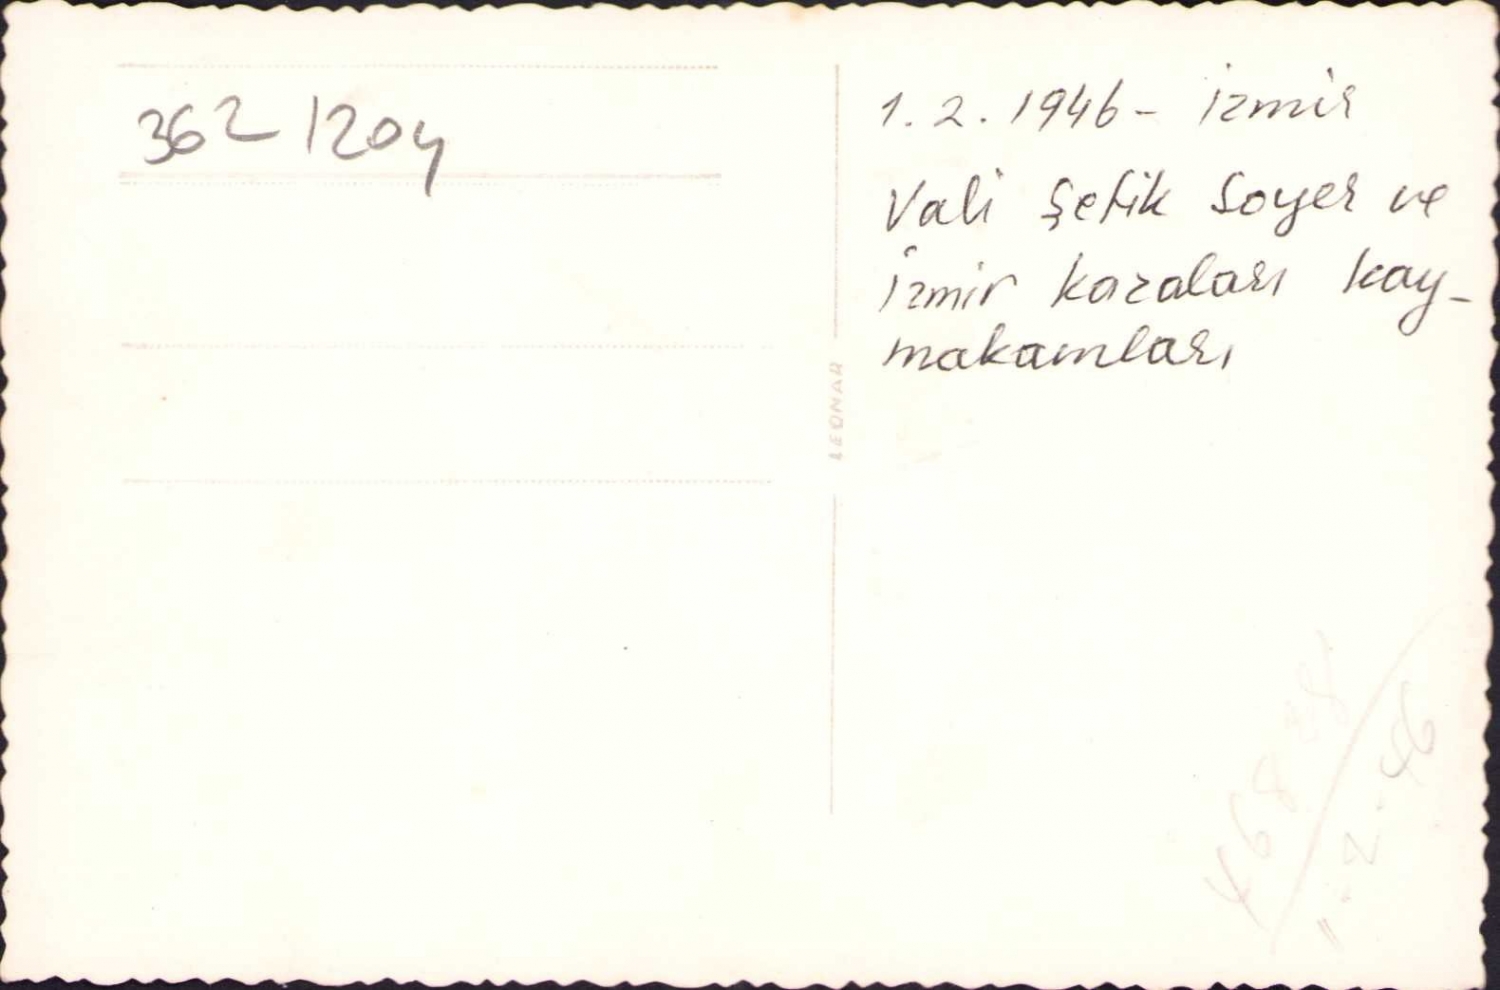 362 1204
1.2.1946 - İzmir
Vali Şefik Soyer ve
İzmir kazaları kay-
makamları
LEONAR